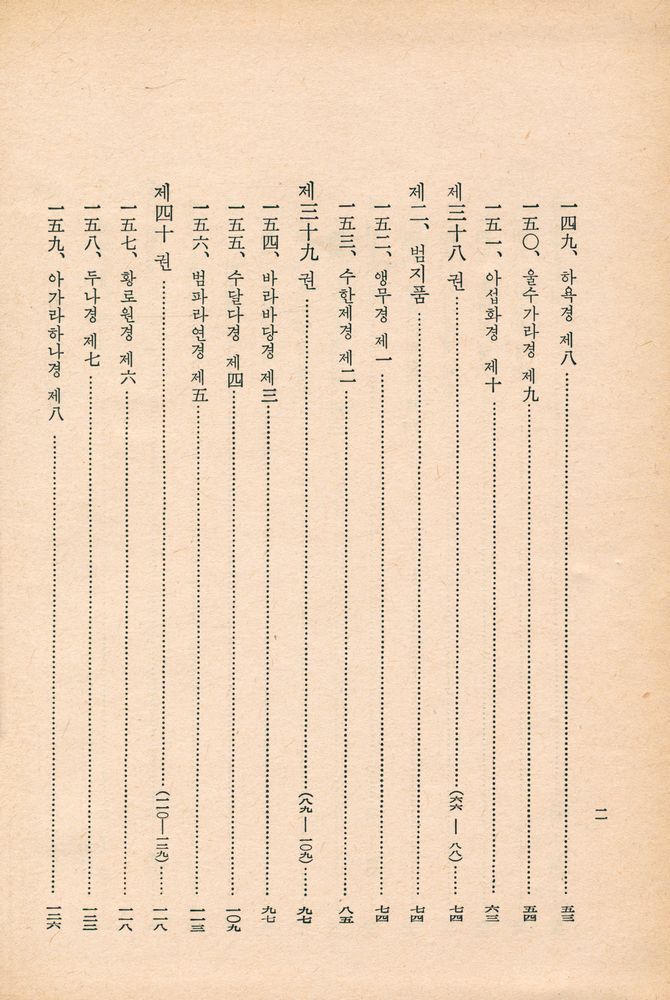 二
一四九、하욕경 제八 五三
一五〇、울수가라경 제九 五四
一五一、아섭화경 제十 六三
제三十八권 (六六—八八) 七四
제二、범지품 七四
一五二、앵무경 제一 七四
一五三、수한제경 제二 八五
제三十九권 (八九—一〇九) 九七
一五四、바라바당경 제三 九七
一五五、수달다경 제四 一〇九
一五六、범파라연경 제五 一一三
제四十권 (一一〇—一二九) 一一八
一五七、황로원경 제六 一一八
一五八、두나경 제七 一二二
一五九、아가라하나경 제八 一二六